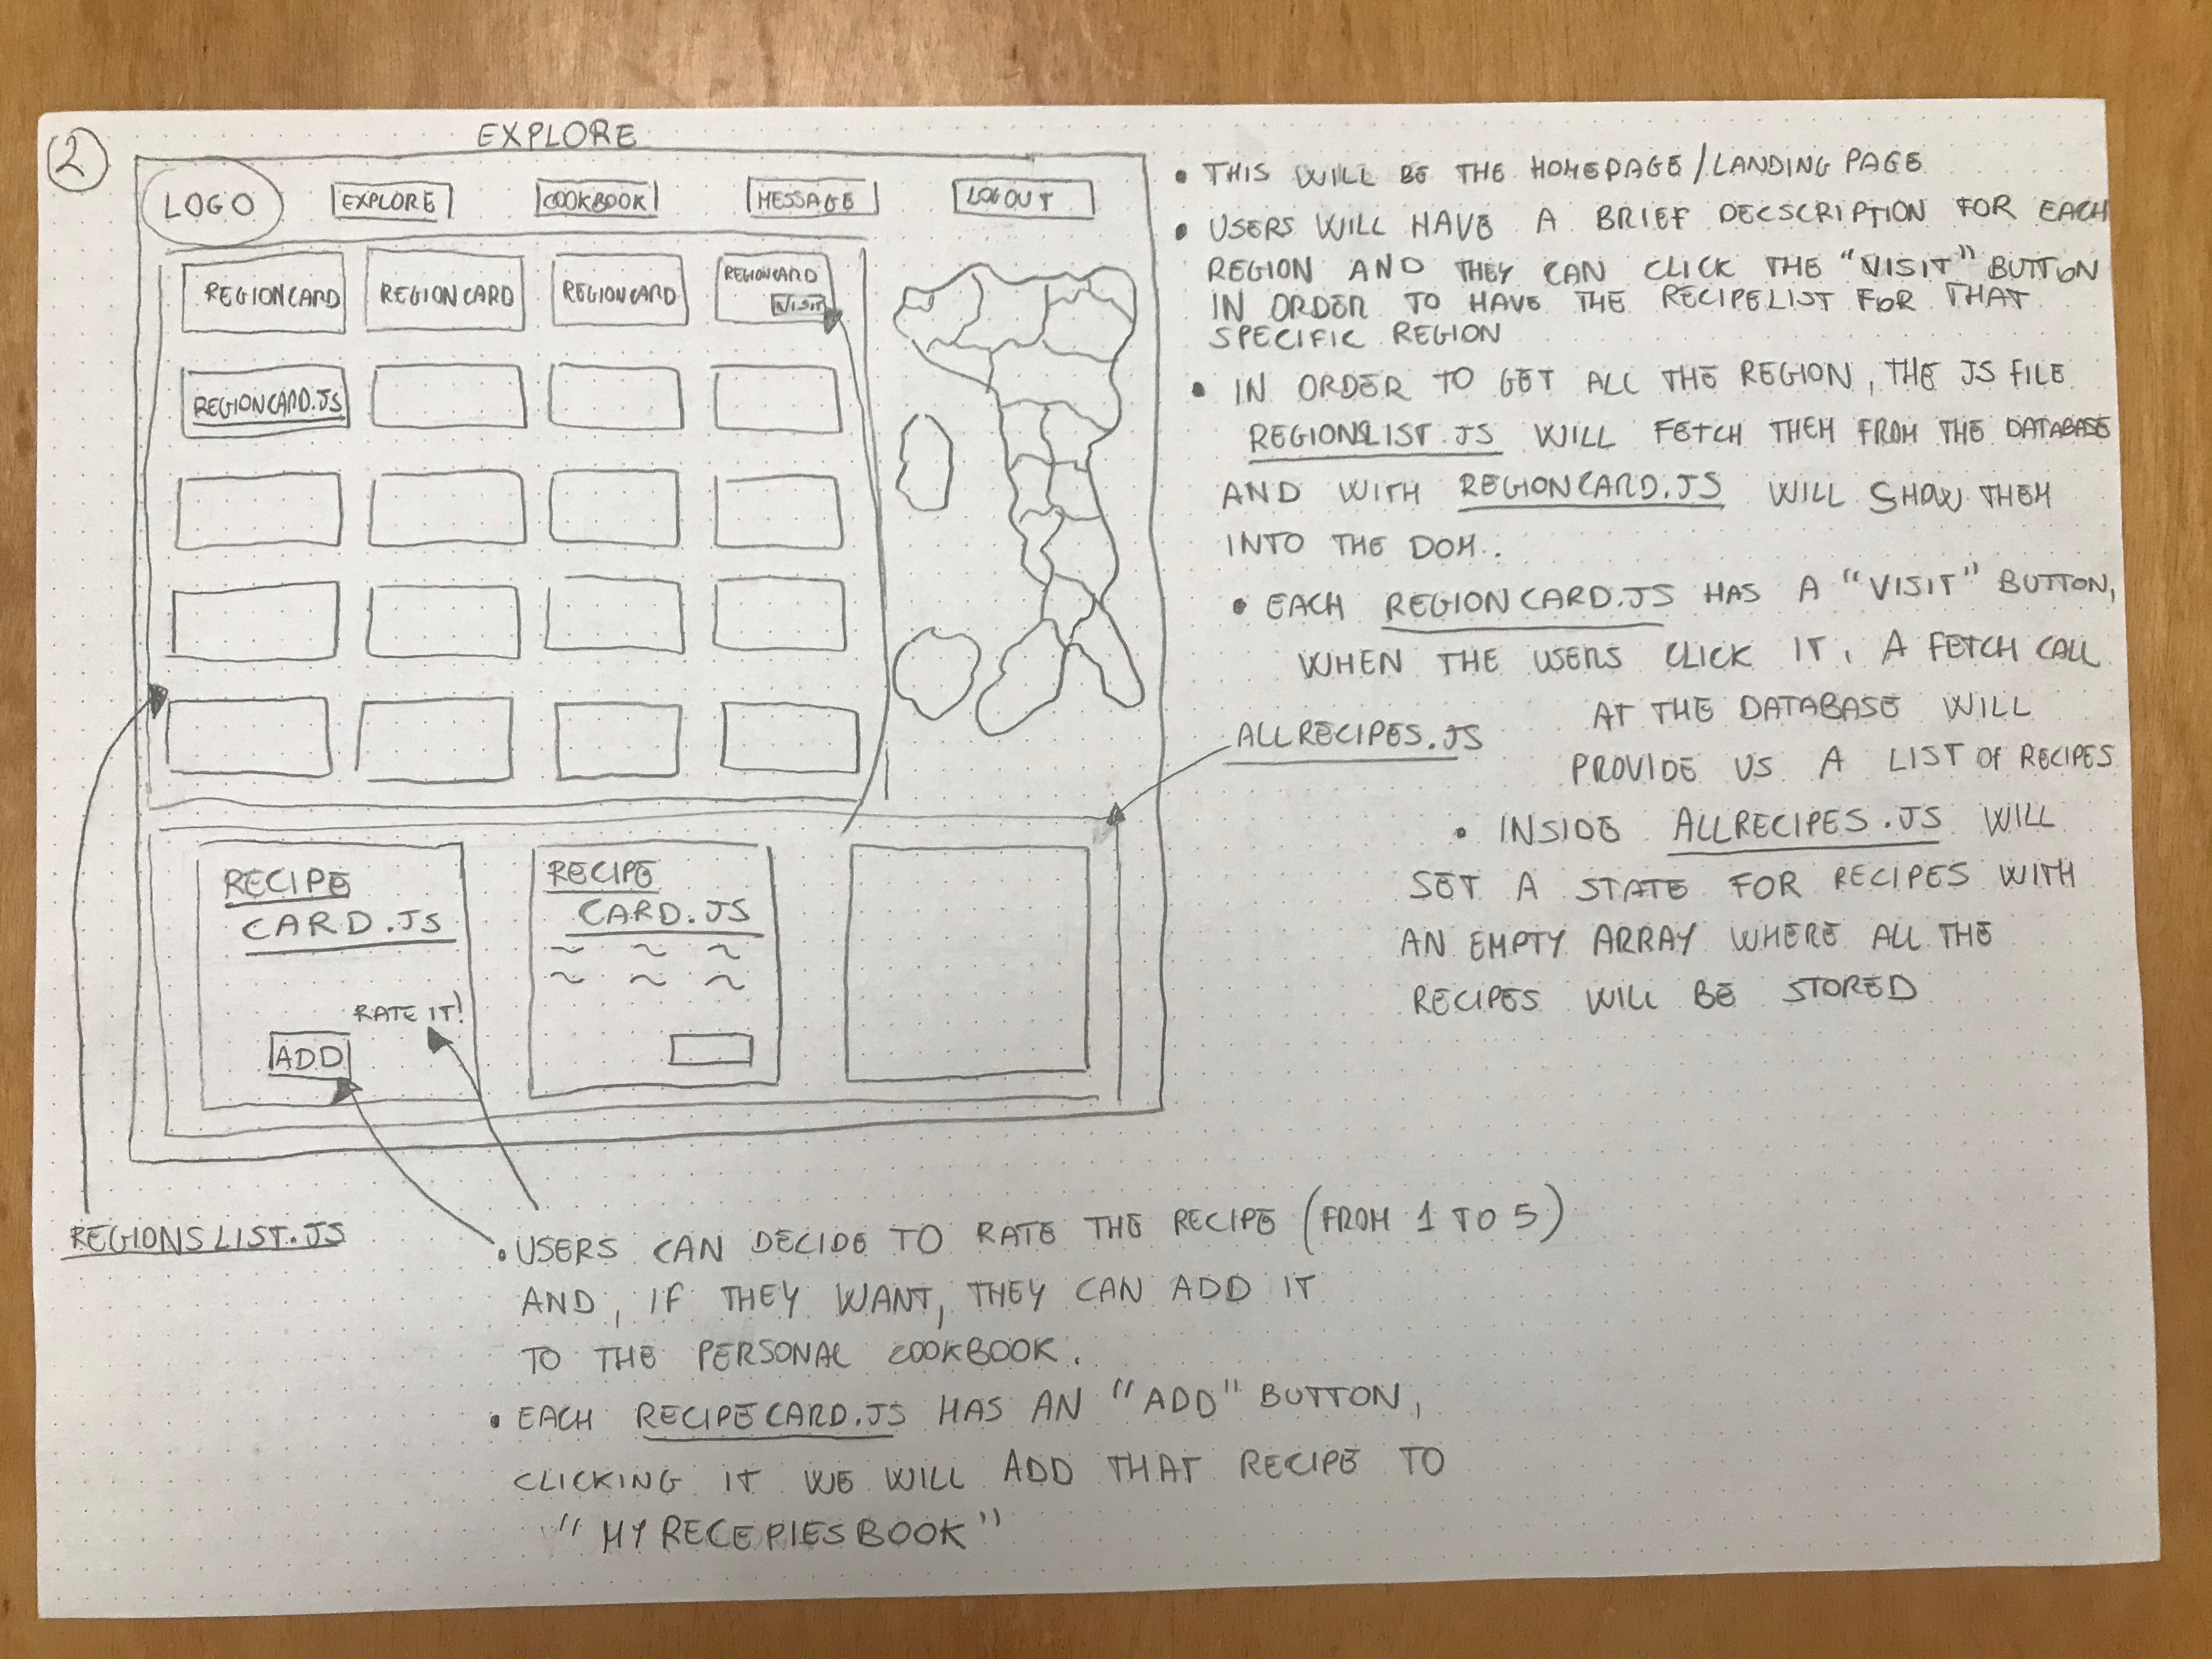 2
EXPLORE
LOGO EXPLORE COOKBOOK MESSAGE LOGOUT
REGIONCARD REGIONCARD REGIONCARD REGIONCARD
VISIT
REGIONCARD.JS
RECIPE
CARD.JS
RATE IT!
ADD
RECIPE
CARD.JS
ALLRECIPES.JS
REGIONSLIST.JS
• THIS WILL BE THE HOMEPAGE/LANDING PAGE
• USERS WILL HAVE A BRIEF DECSCRIPTION FOR EACH
REGION AND THEY CAN CLICK THE "VISIT" BUTTON
IN ORDER TO HAVE THE RECIPELIST FOR THAT
SPECIFIC REGION
• IN ORDER TO GET ALL THE REGION, THE JS FILE
REGIONSLIST.JS WILL FETCH THEM FROM THE DATABASE
AND WITH REGIONCARD.JS WILL SHOW THEM
INTO THE DOM.
• EACH REGIONCARD.JS HAS A "VISIT" BUTTON,
WHEN THE USERS CLICK IT, A FETCH CALL
AT THE DATABASE WILL
PROVIDE US A LIST OF RECIPES
• INSIDE ALLRECIPES.JS WILL
SET A STATE FOR RECIPES WITH
AN EMPTY ARRAY WHERE ALL THE
RECIPES WILL BE STORED
• USERS CAN DECIDE TO RATE THE RECIPE (FROM 1 TO 5)
AND, IF THEY WANT, THEY CAN ADD IT
TO THE PERSONAL COOKBOOK.
• EACH RECIPECARD.JS HAS AN "ADD" BUTTON,
CLICKING IT WE WILL ADD THAT RECIPE TO
"MYRECEPIESBOOK"